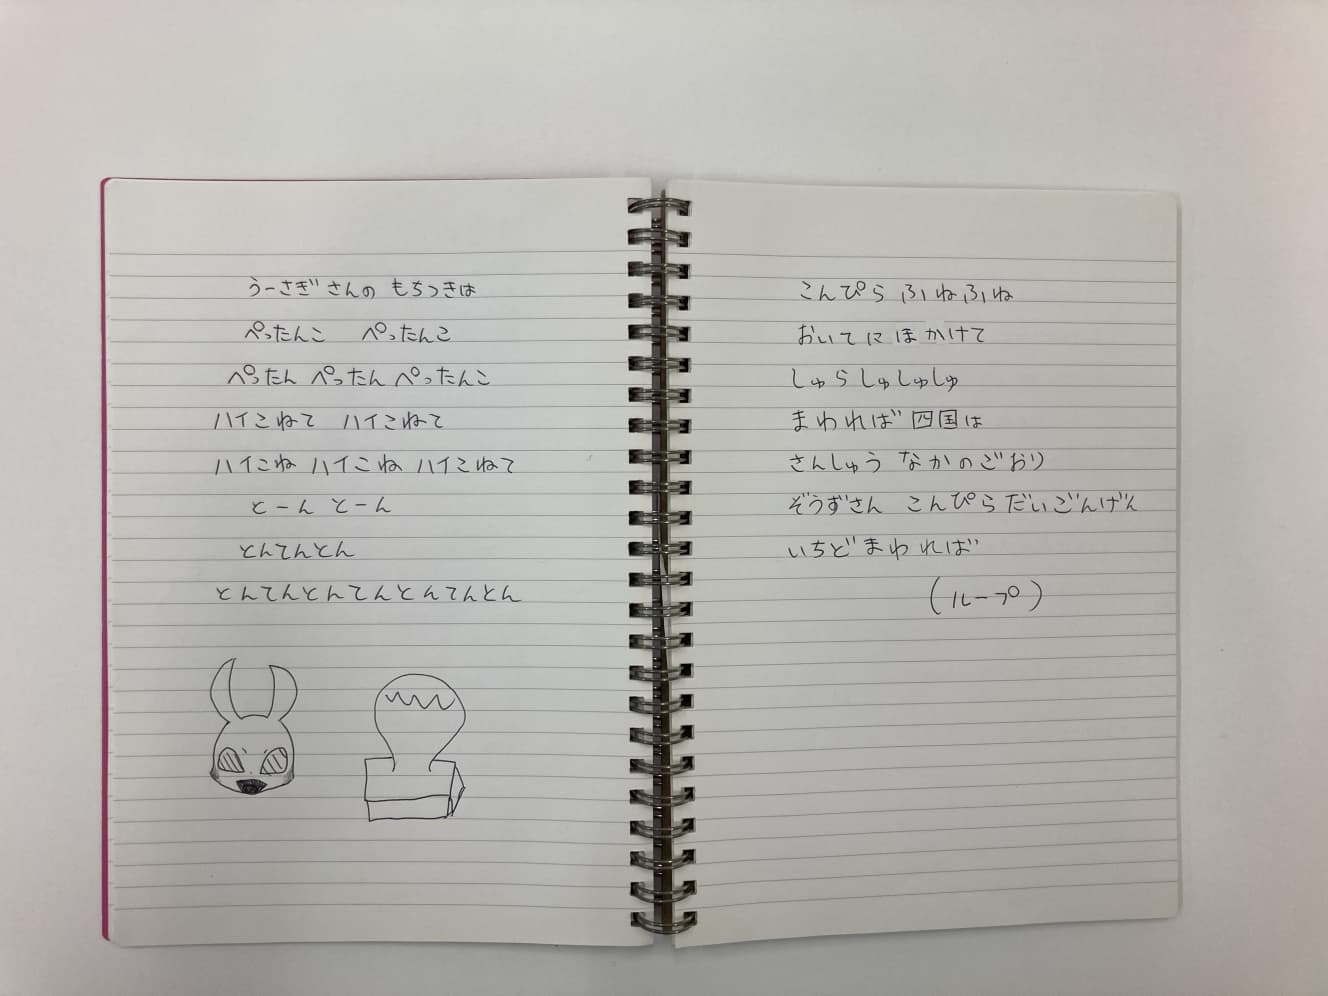 うーさぎさんの もちつきは
ぺったんこ ぺったんこ
ぺったん ぺったん ぺったんこ
ハイこねて ハイこねて
ハイこね ハイこね ハイこねて
とーん とーん
とんてんとん
とんてんとんてんとんてんとん
こんぴら ふねふね
おいてにほかけて
しゅらしゅしゅしゅ
まわれば四国は
さんしゅう なかのごおり
ぞうずさん こんぴらだいごんげん
いちどまわれば
(ループ)